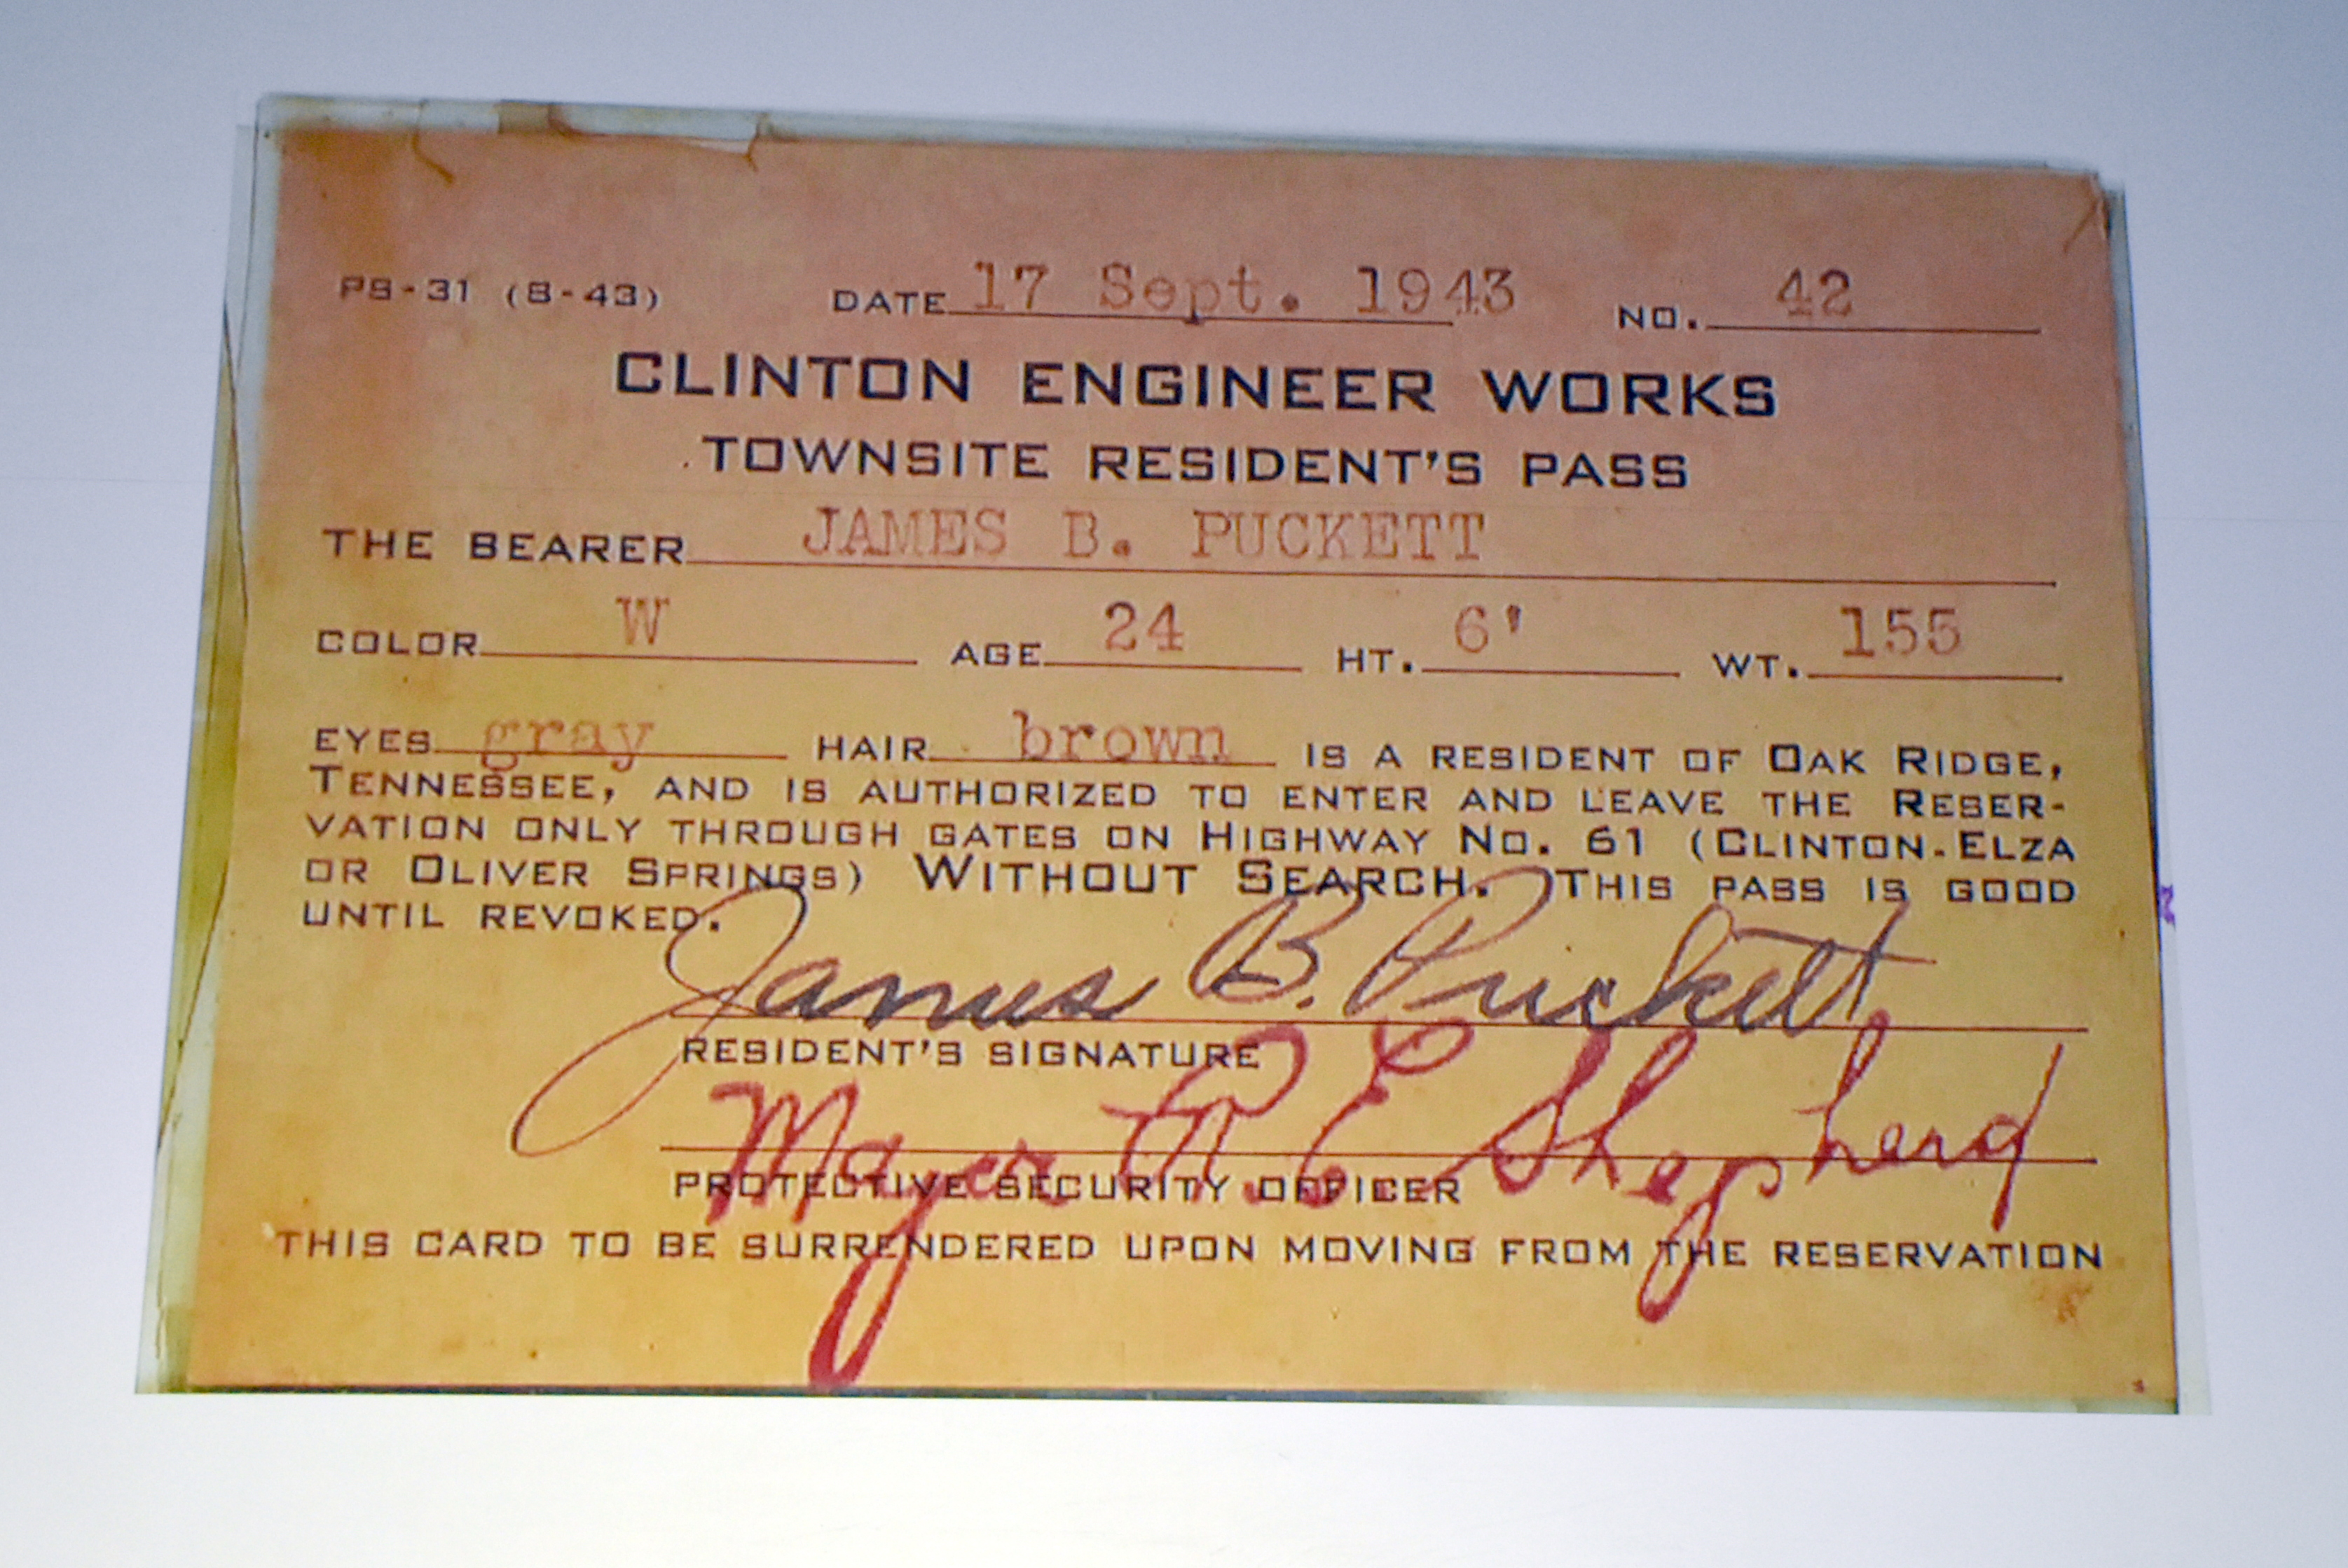 PS-31 (8-43) DATE 17 Sept. 1943 NO. 42
CLINTON ENGINEER WORKS
TOWNSITE RESIDENT'S PASS
THE BEARER JAMES B. PUCKETT
COLOR W AGE 24 HT. 6' WT. 155
EYES gray HAIR brown IS A RESIDENT OF OAK RIDGE,
TENNESSEE, AND IS AUTHORIZED TO ENTER AND LEAVE THE RESER-
VATION ONLY THROUGH GATES ON HIGHWAY NO. 61 (CLINTON-ELZA
OR OLIVER SPRINGS) WITHOUT SEARCH. THIS PASS IS GOOD
UNTIL REVOKED.
James B. Puckett
RESIDENT'S SIGNATURE
Shepherd
PROTECTIVE SECURITY OFFICER
THIS CARD TO BE SURRENDERED UPON MOVING FROM THE RESERVATION